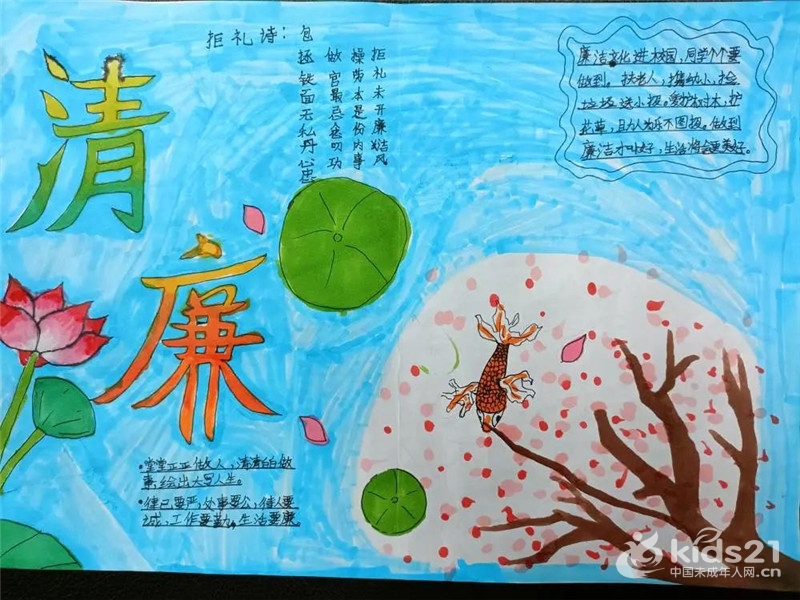 清
廉
拒礼诗：包
拯铁面无私丹心忠
做官最忌念叨功
操劳本是份内事
拒礼未开廉洁风
廉洁文化进校园，同学个个要
做到。扶老人，携幼小，捡
垃圾，送小报。爱护树木，护
花草，助人为乐不图报。做到
廉洁才叫好，生活将会更美好。
•堂堂正正做人，清清白白做
事，绘出大写人生。
•律己要严，处事要公，待人要
诚，工作要勤，生活要廉。
kids21
中国未成年人网.cn